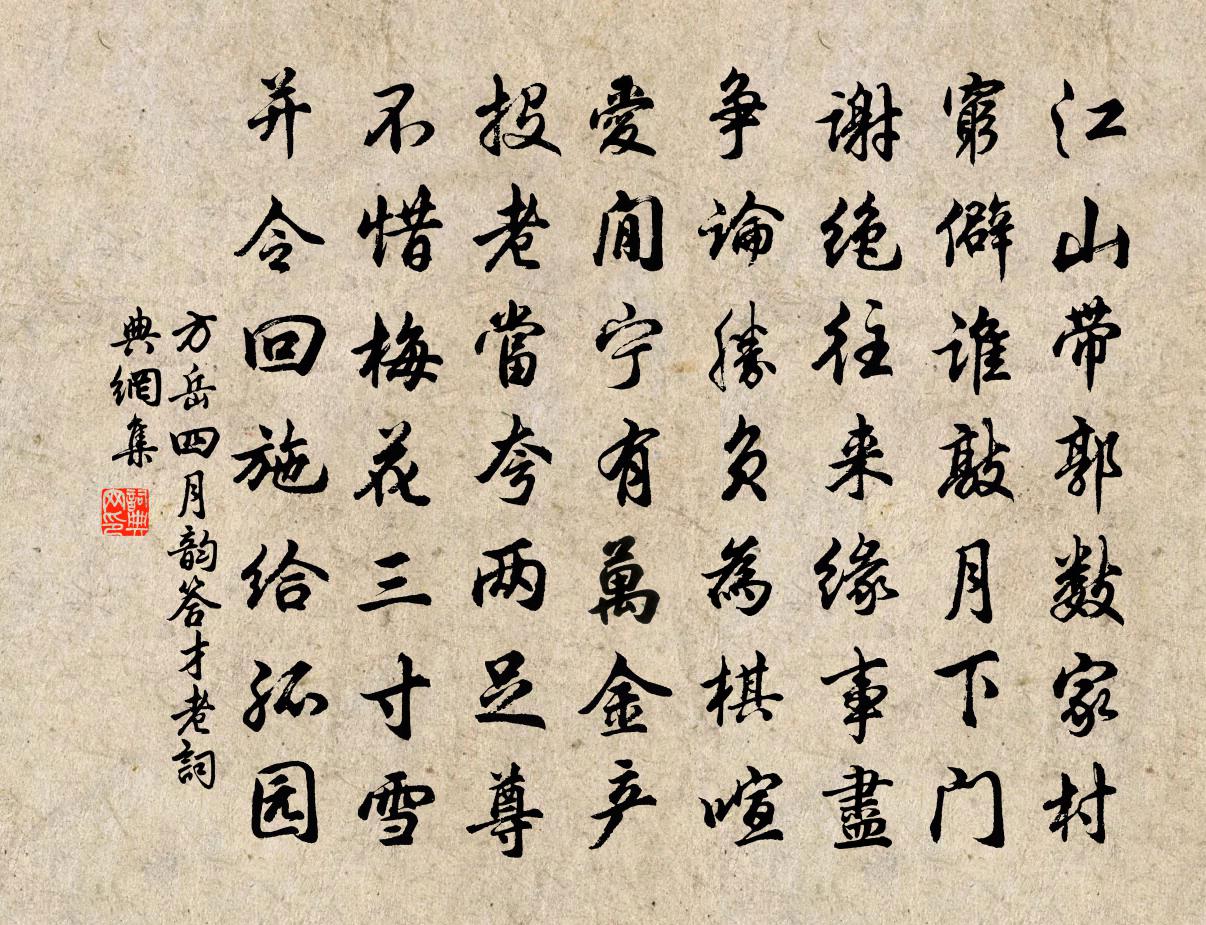 江山带郭数家村
穷僻谁敲月下门
谢绝往来缘事尽
争論勝负為棋喧
愛闲宁有萬金产
投老當夸两足尊
不惜梅花三寸雪
并令回施给孤园
方岳四月韵答才老詞
典網集
詞典
网印